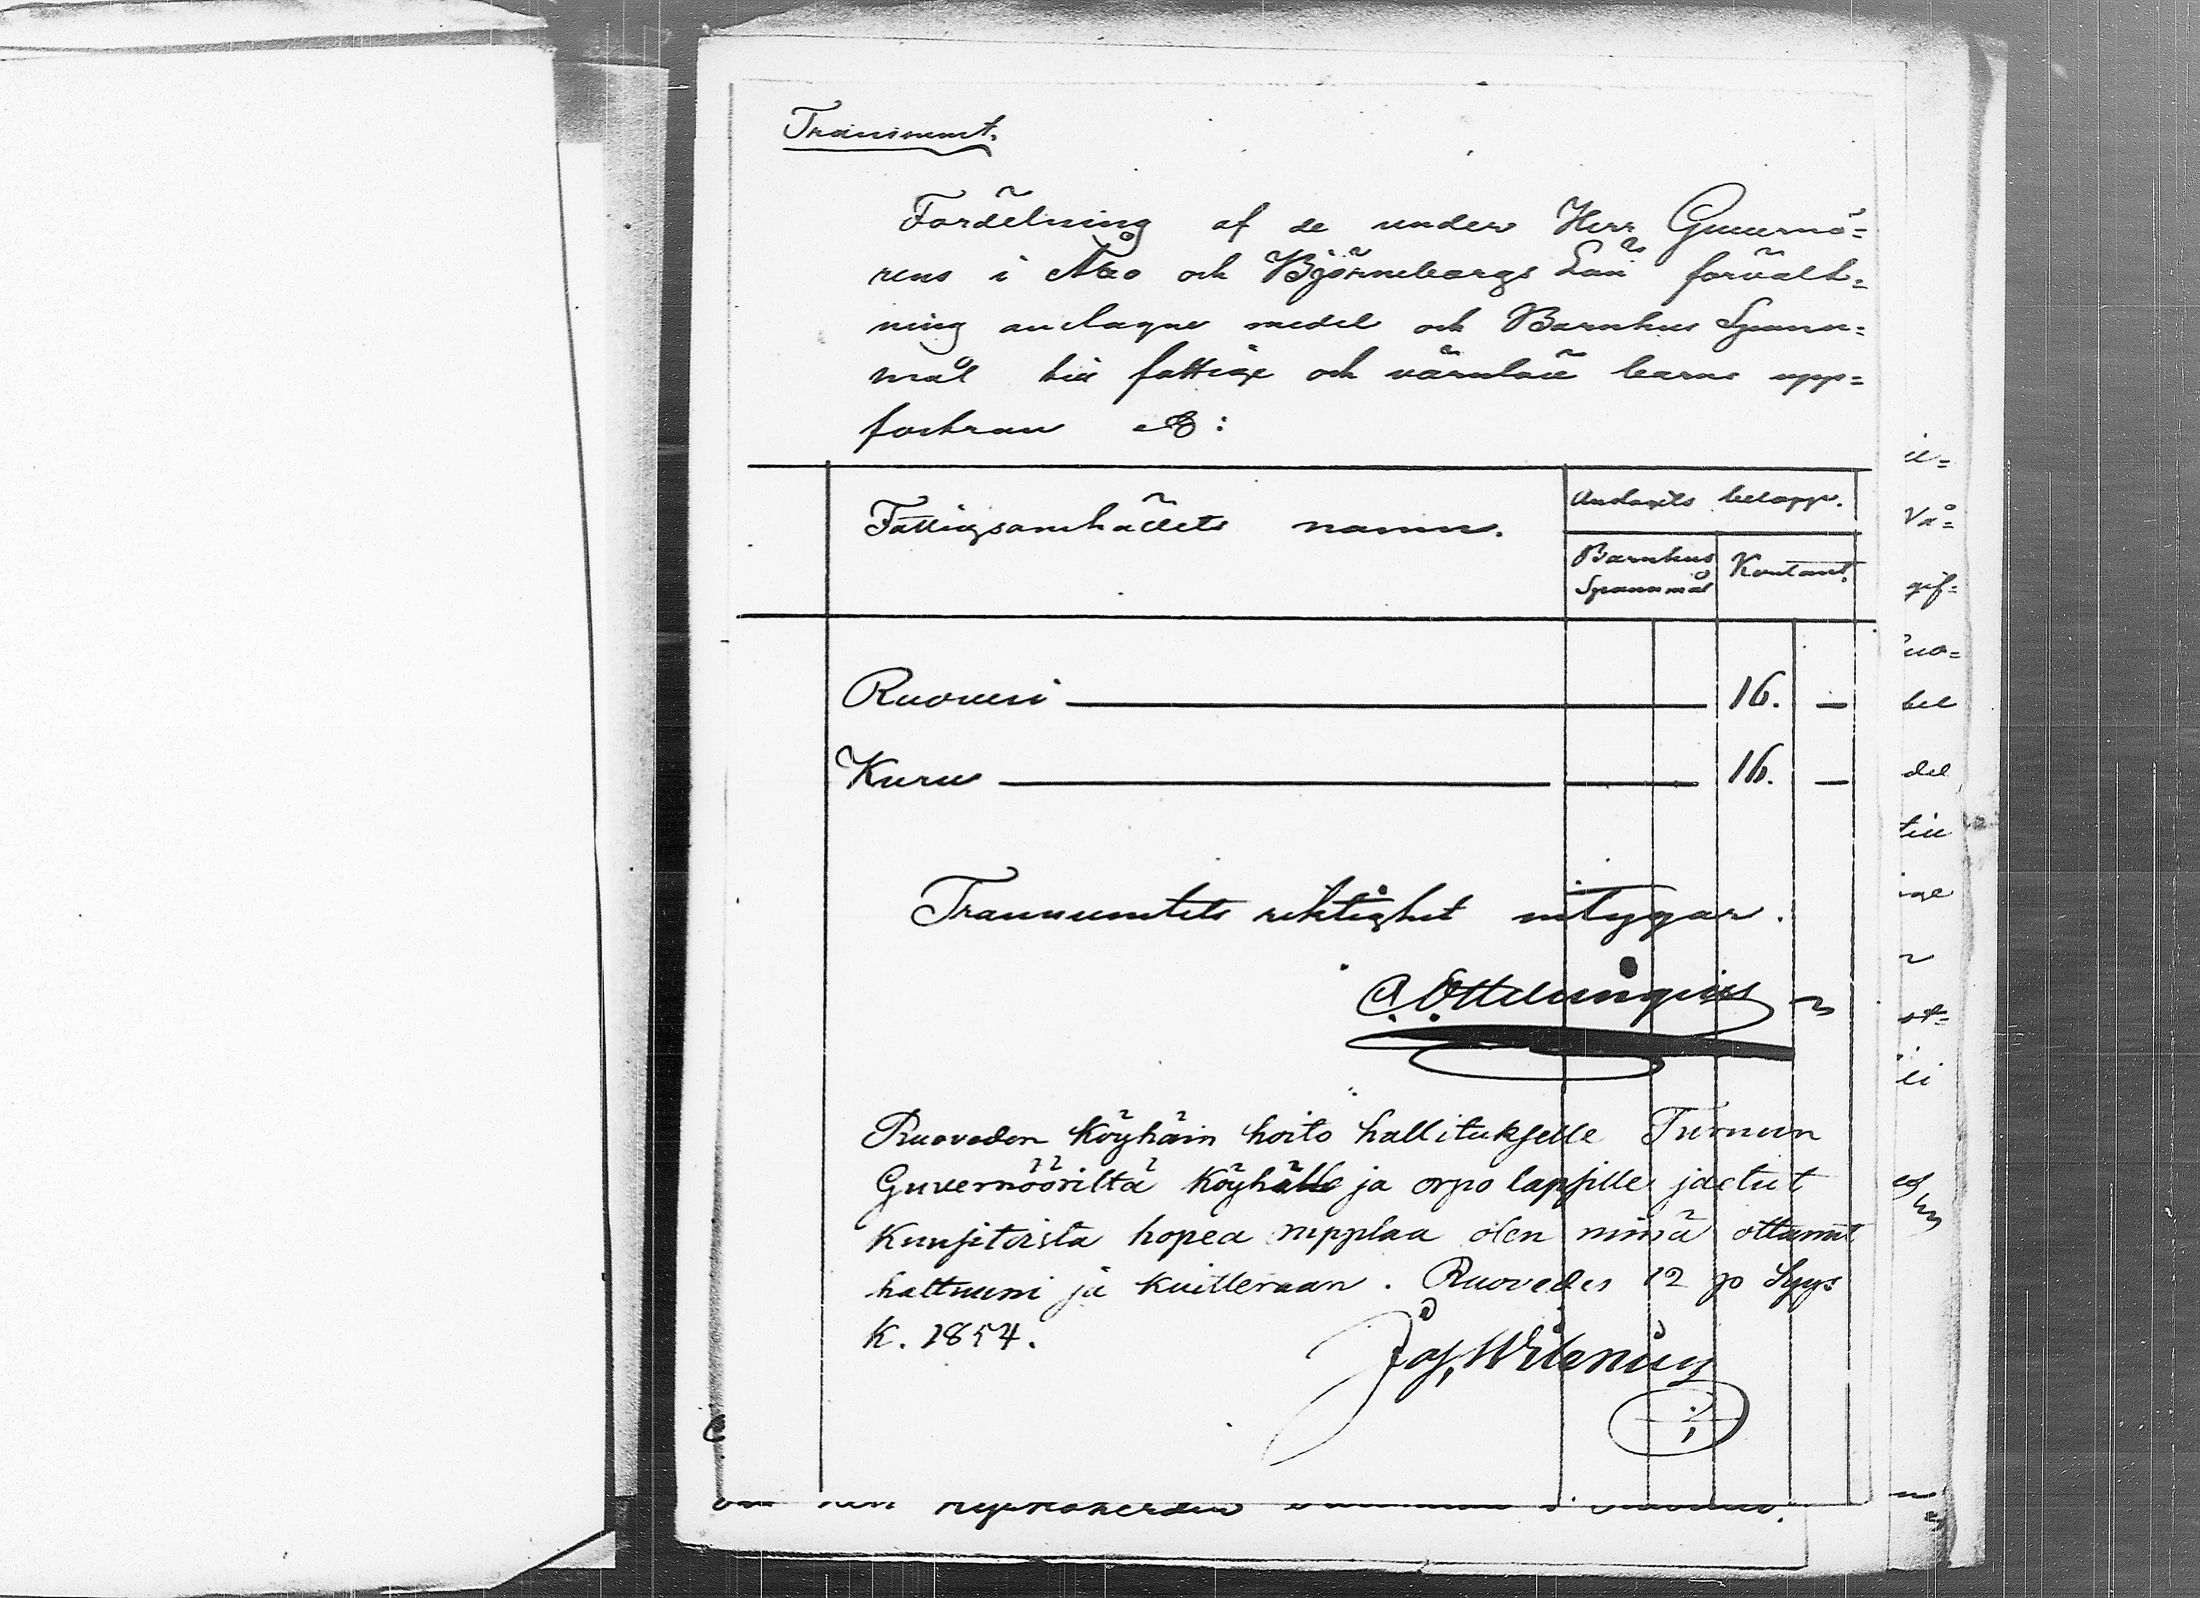 Transsumt.
Fördelning af de under Herr Guvernö=
rens i Åbo och Björneborgs Län förvalt=
ning anslagne medel och Barnhus Spann=
mål till fattige och värnlöse barns upp=
fostran &:
Fattigsamhällets namn.
Anslagets belopp.
Barnhus Spannmål
Kontant.
Ruovesi 16. —
Kuru 16. —
Transsumtets riktighet intygar.
Ruoveden köyhäin hoito hallitukselle Turuun
Guvernööriltä köyhälle ja orpo lapsille jaetut
Kuusitoista hopea rupplaa olen minä ottanut
haltuuni ja kuitteraan. Ruovedes 12 p. Syys
K. 1854.
Jos. Wilenius
il=
Vå=
gif=
Ruo=
bel
del
till
ige
st=